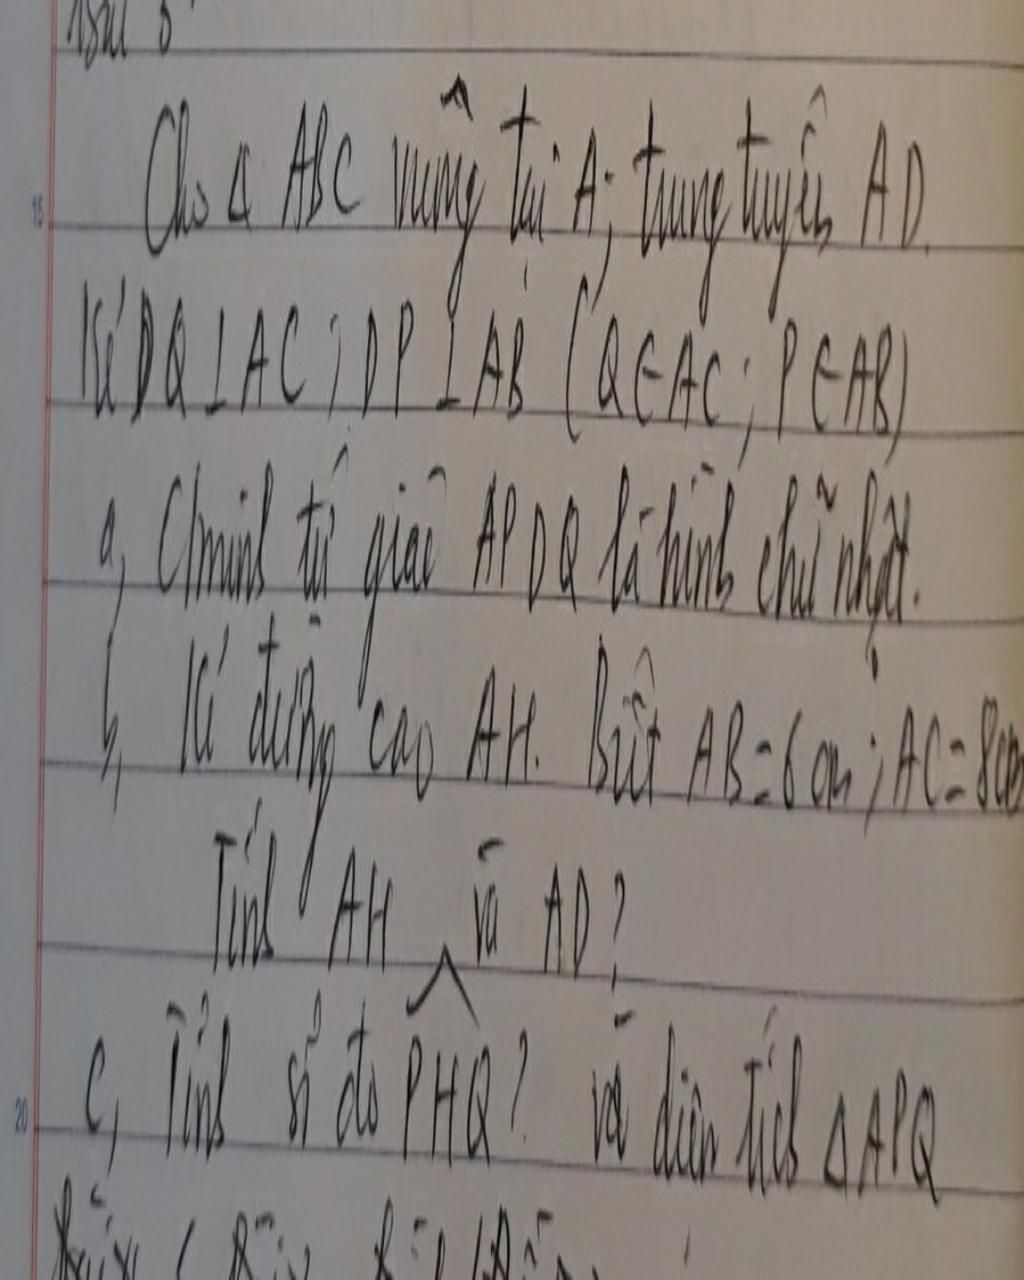 Bài 5
Cho Δ ABC vuông tại A; trung tuyến AD.
Kẻ DQ ⊥ AC; DP ⊥ AB (Q ∈ AC; P ∈ AB)
a, C/minh tứ giác APDQ là hình chữ nhật.
b, Kẻ đường cao AH. Biết AB = 6 cm; AC = 8cm
Tính AH và AD?
c, Tính số đo PHQ? và diện tích Δ APQ